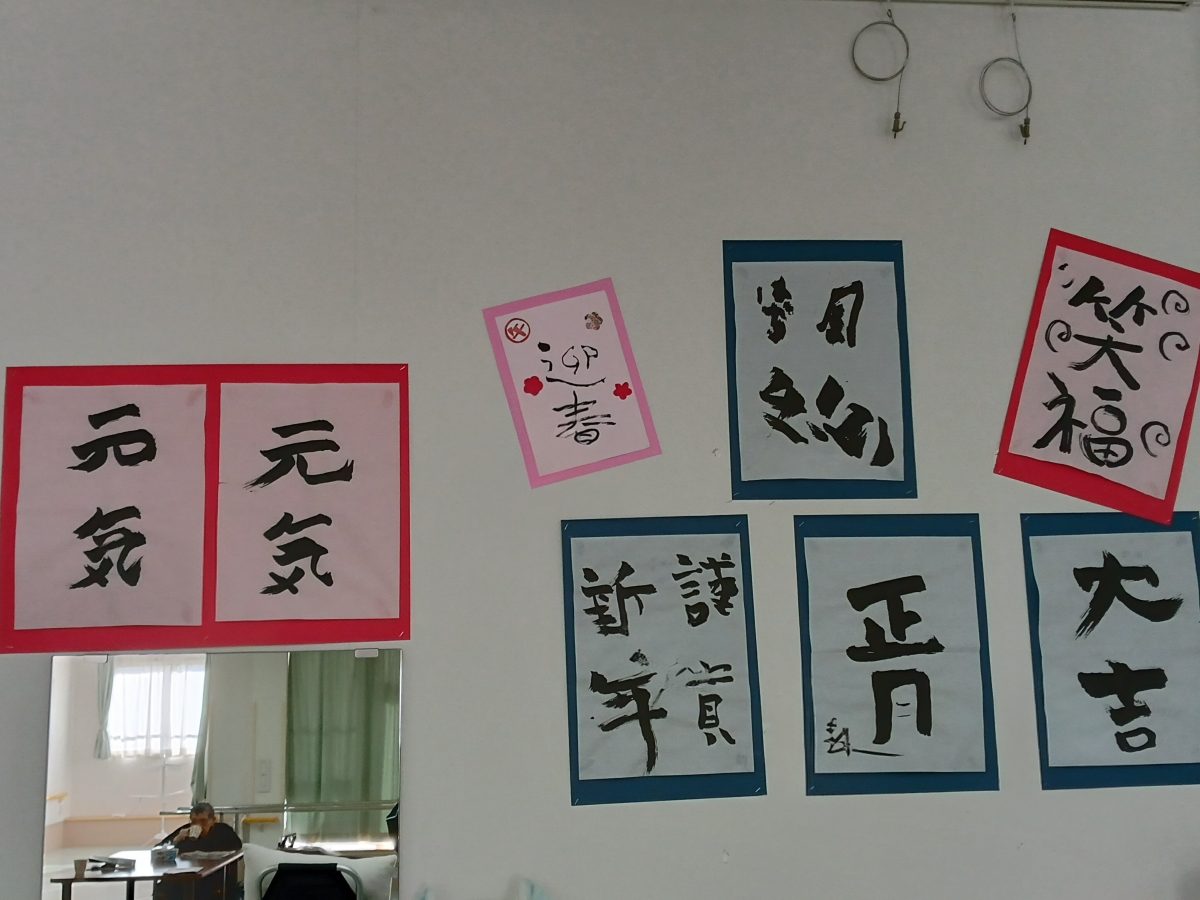 元気
元気
迎春
笑福
謹賀
新年
正月
大吉